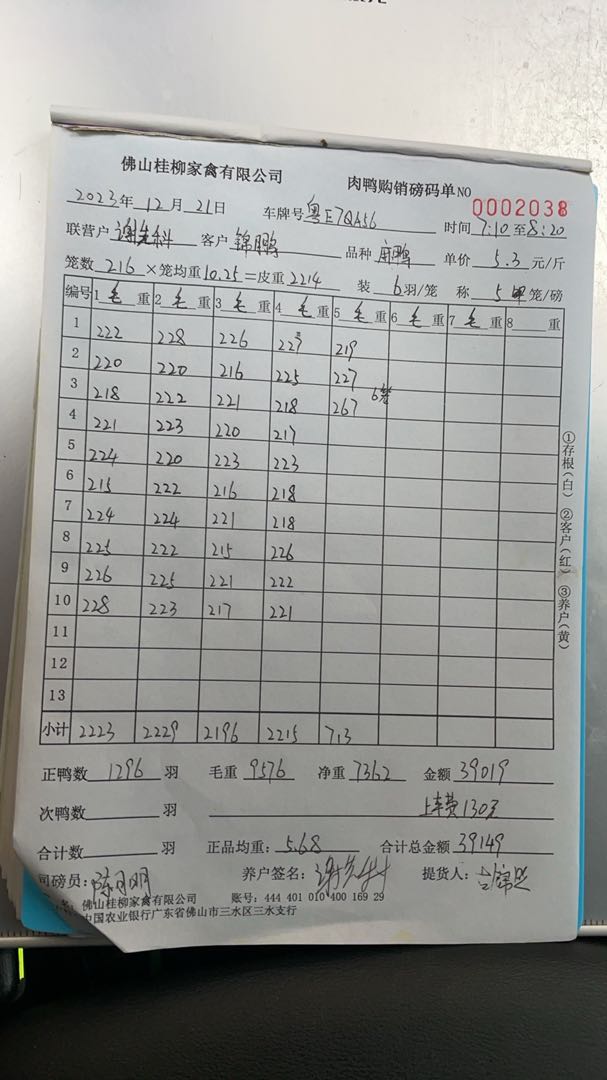 佛山桂柳家禽有限公司 肉鸭购销磅码单 NO 0002038
2023年 12月 21日 车牌号 粤E7QA56 时间 7:10至8:20
联营户 谢先科 客户 锦鹏 品种 麻鸭 单价 5.3 元/斤
笼数 216 ×笼均重 10.25 =皮重 2214 装 6 羽/笼 称 5 笼/磅
编号 1 毛 重 2 毛 重 3 毛 重 4 毛 重 5 毛 重 6 毛 重 7 毛 重 8 重
1 222 228 226 227 219
2 220 220 216 225 227
3 218 222 221 218 267 6笼
4 221 223 220 217
5 224 220 223 223
6 215 222 216 218
7 224 224 221 218
8 225 222 215 226
9 226 225 221 222
10 228 223 217 221
11
12
13
小计 2223 2229 2196 2215 713
正鸭数 1296 羽 毛重 9576 净重 7362 金额 39019
次鸭数 羽 上车费130元
合计数 羽 正品均重: 5.68 合计总金额 39149
司磅员: 陈 明 养户签名: 谢先科 提货人:
名: 佛山桂柳家禽有限公司 账号: 444 401 010 400 169 29
中国农业银行广东省佛山市三水区三水支行
①存根(白) ②客户(红) ③养户(黄)